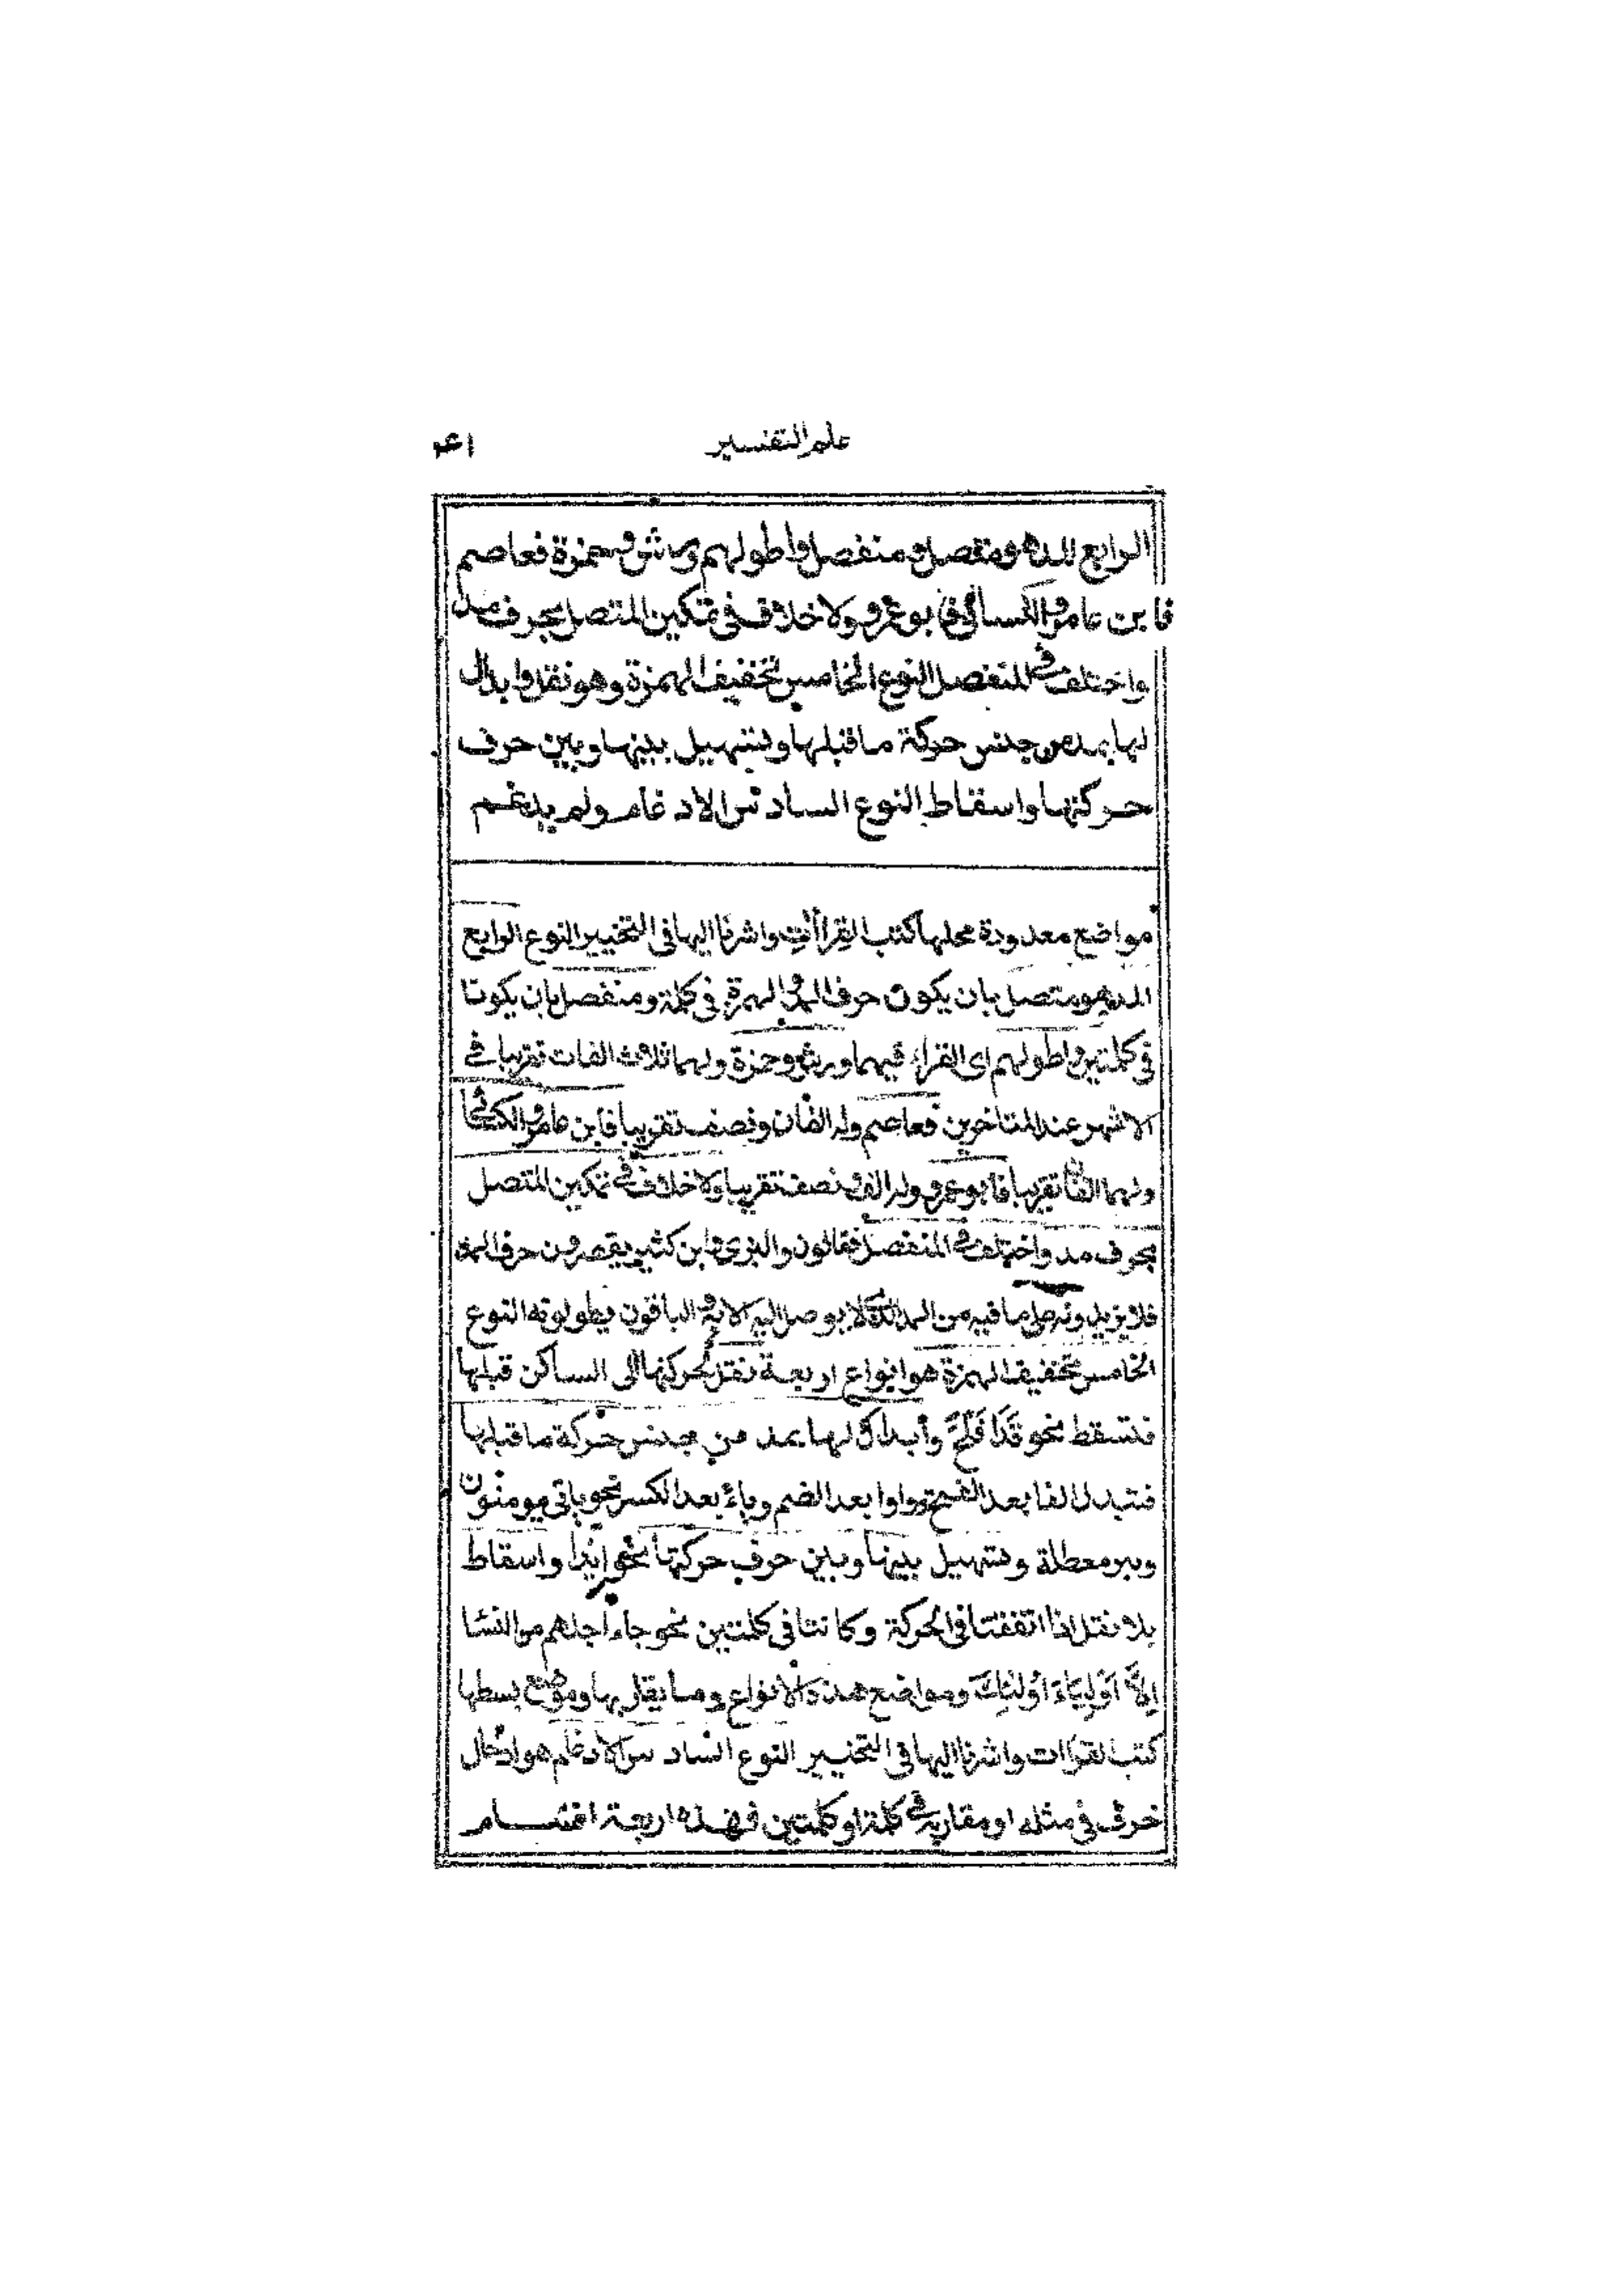 علم التفسير
٤١
الرابع المد هو متصل ومنفصل واطولهم ورش وحمزة فعاصم
فابن عامر والكسائي فابو عمرو ولا خلاف في تمكين المتصل بحرف مد
واختلف في المنفصل النوع الخامس تخفيف الهمزة وهو نقل وابدال
لها بمد من جنس حركة ما قبلها وتسهيل بينها وبين حرف
حركتها واسقاط النوع السادس الادغام ولم يدغم
مواضع معدودة محلها كتب القراأت واشرنا اليها في التحبير النوع الرابع
المد هو متصل بان يكون حرف المد والهمزة في كلمة ومنفصل بان يكونا
في كلمتين واطولهم اى القراء فيهما ورش وحمزة ولهما ثلاث الفات تقريبا في
الاشهر عند المتاخرين فعاصم وله الفان ونصف تقريبا فابن عامر والكسائي
ولهما الفان تقريبا فابو عمرو وله الف ونصف تقريبا ولا خلاف في تمكين المتصل
بحرف مد واختلف في المنفصل فقالون والبزى وابن كثير يقصرون حرف المد
فلا يزيدونه على ما فيه من المد الذى لا يوصل اليه الا به والباقون يطولونه النوع
الخامس تخفيف الهمزة هو انواع اربعة نقل لحركتها الى الساكن قبلها
فتسقط نحو قَدَ افْلَحَ وأبدال لها بمد من جنس حركة ما قبلها
فتبدل الفا بعد الفتح وواوا بعد الضم وياء بعد الكسر نحو ياتى يومنون
وبير معطلة وتسهيل بينها وبين حرف حركتها نحو ائذا واسقاط
بلا نقل اذا اتفقتا في الحركة وكانتا في كلمتين نحو جاء اجلهم من النسا
اِلاَّ اَوْلِيَاءُ اُولٰئِكَ ومواضع هذه الانواع وما يقل بها وموضع بسطها
كتب القراات واشرنا اليها في التحبير النوع السادس الادغام هو ادخال
حرف في مثله او مقاربه في كلمة او كلمتين فهذه اربعة اقسام